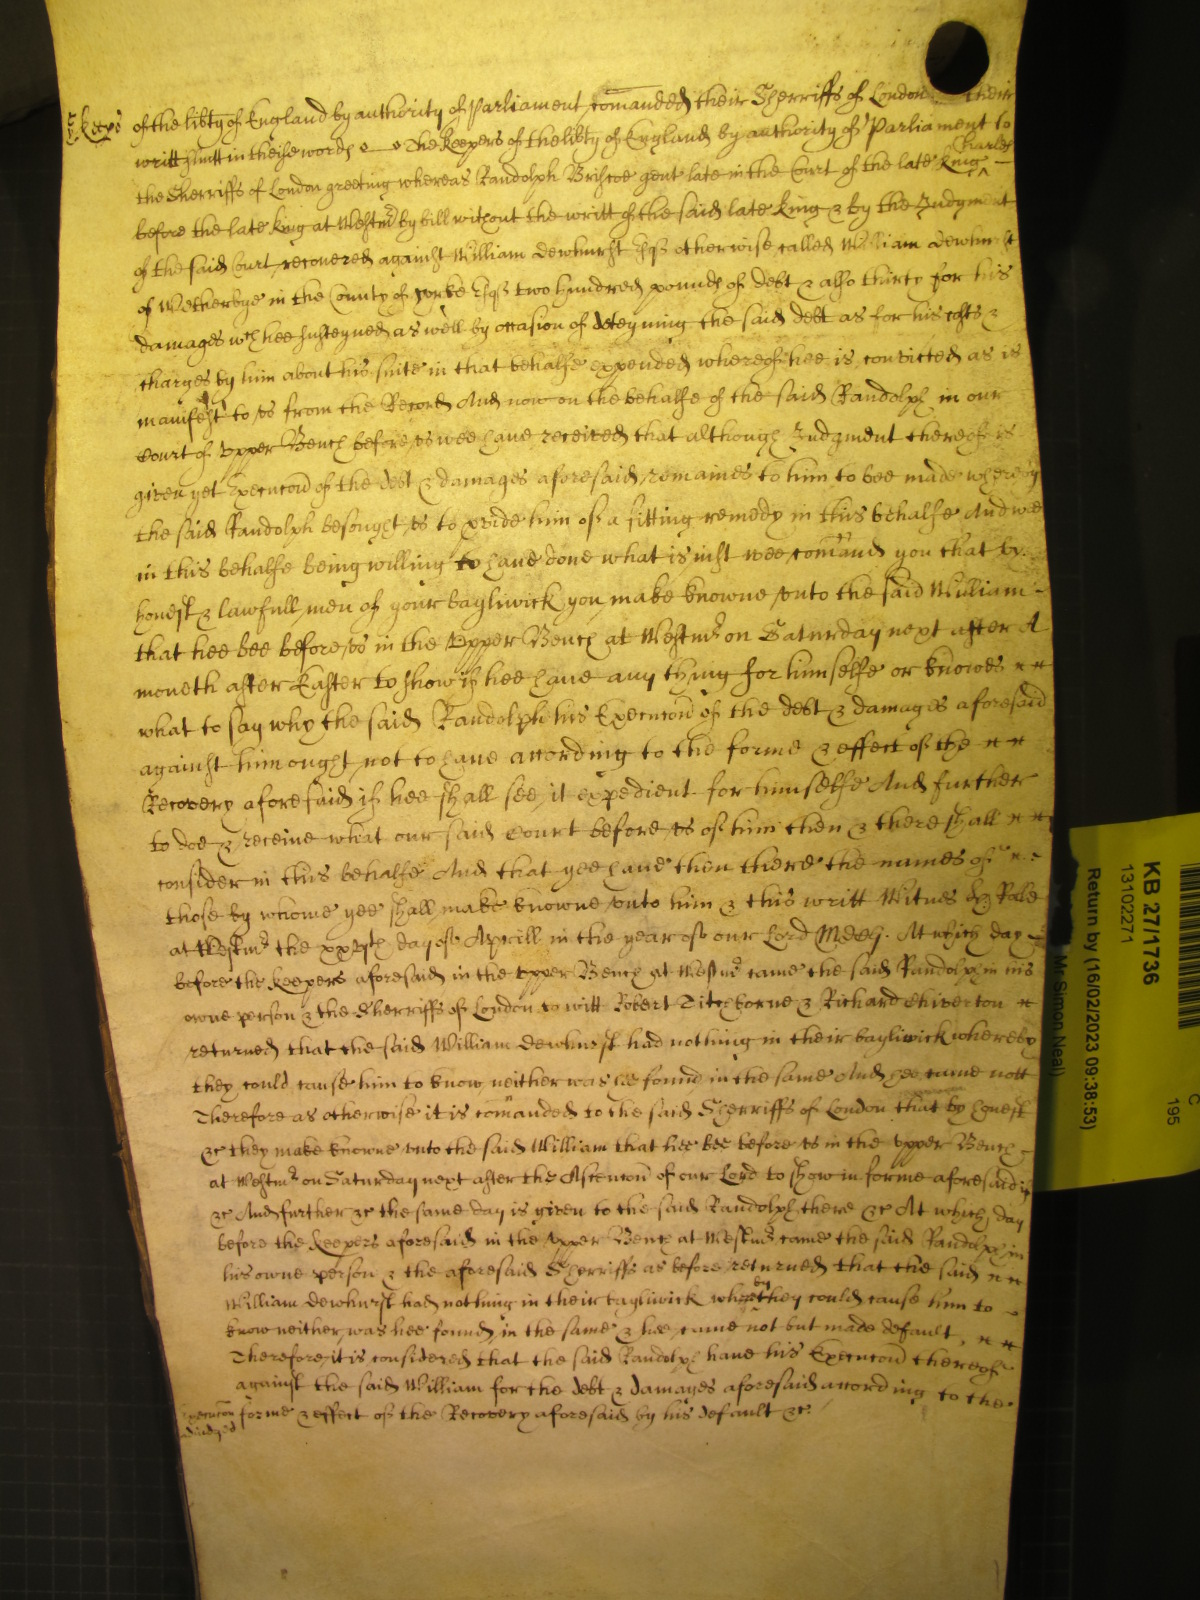 Keeps of the libty of England by authority of Parliament comanded their Sherriffs of London their
writt in theise words The Keepers of the libty of England by authority of Parliament to
the Sherriffs of London greeting whereas Randolph Briscoe gent late in the Court of the late King Charles
before the late King at Westmr by bill without the writt of the said late King & by the Judgment
of the said Court recovered against William Dewhurst Esqr otherwise called William Dewhurst
of Wetherbye in the County of Yorke Esqr two hundred pounds of debt & also thirty for his
damages wch hee susteyned as well by occasion of deteyning the said debt as for his costs &
charges by him about his suite in that behalfe expended whereof hee is convicted as is
manifest to vs from the Record And now on the behalfe of the said Randolph in our
Court of vpper Bench before vs wee have received that although Judgment thereof is
given yet Execucon of the debt & damages aforesaid remaines to him to bee made whereby
the said Randolph besought vs to pvide him of a fitting remedy in this behalfe And wee
in this behalfe being willing to have done what is just wee comand you that by
honest & lawfull men of your bayliwick you make knowne vnto the said William
that hee bee before vs in the Vpper Bench at Westmr on Saturday next after A
moneth after Easter to show if hee have any thing for himselfe or knowes
what to say why the said Randolph his Execucon of the debt & damages aforesaid
against him ought not to have according to the forme & effect of the
Recovery aforesaid if hee shall see it expedient for himselfe And further
to doe & receive what our said Court before vs of him then & there shall
consider in this behalfe And that yee have then there the names of
those by whome yee shall make knowne vnto him & this writt Witnes Hy Rolle
at Westmr the day of Aprill in the year of our Lord At which day
before the Keepers aforesaid in the vpper Bench at Westmr came the said Randolph in his
owne person & the Sherriffs of London to witt Robert Titchborne & Richard Chiverton
returned that the said William Dewhurst had nothing in their bayliwick whereby
they could cause him to know neither was he found in the same And hee came nott
Therefore as otherwise it is comanded to the said Sherriffs of London that by honest
&c they make knowne vnto the said William that hee bee before vs in the vpper Bench
at Westmr on Saturday next after the Ascencon of our Lord to show in forme aforesaid if
&c And further &c the same day is given to the said Randolph there &c At which day
before the Keepers aforesaid in the vpper Bench at Westmr came the said Randolph in
his owne person & the aforesaid Sherriffs as before returned that the said
William Dewhurst had nothing in their bayliwick whereby they could cause him to
know neither was hee found in the same & hee came not but made default
Therefore it is considered that the said Randolph have his Execucon thereof
against the said William for the debt & damages aforesaid according to the
forme & effect of the Recovery aforesaid by his default &c
Execucon
adiudged
KB 27/1736
13102271
Return by (16/02/2023 09:38:53)
Mr Simon Neal)
C
195